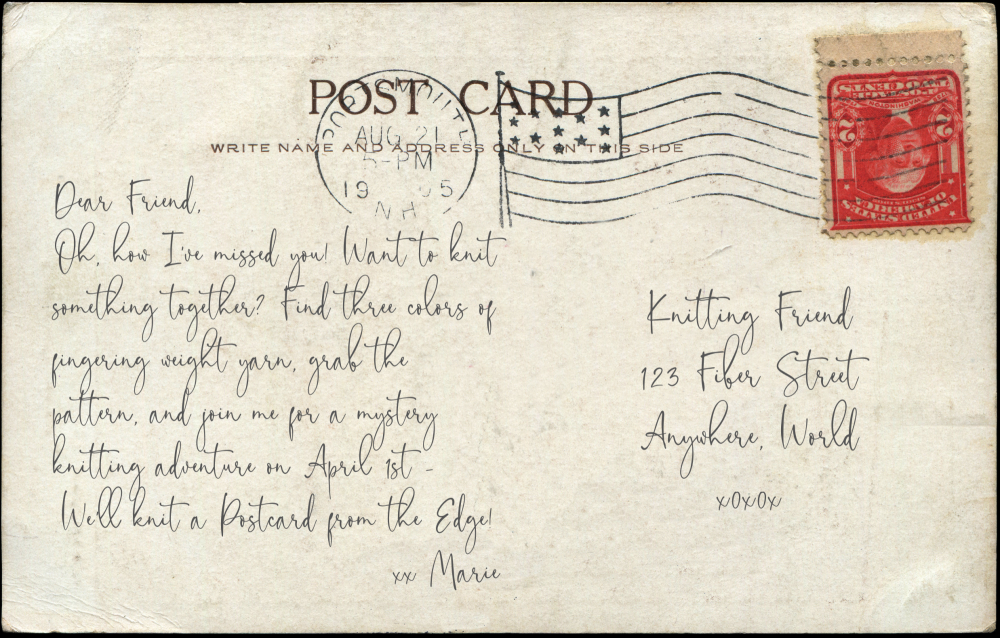 POST CARD
WRITE NAME AND ADDRESS ONLY ON THIS SIDE
PORTSMOUTH
AUG 21
5-PM
19 05
N.H.
UNITED STATES
OF AMERICA
2 2
TWO CENTS
Dear Friend,
Oh, how I've missed you! Want to knit
something together? Find three colors of
fingering weight yarn, grab the
pattern, and join me for a mystery
knitting adventure on April 1st -
We'll knit a Postcard from the Edge!
xx Marie
Knitting Friend
123 Fiber Street
Anywhere, World
xoxox